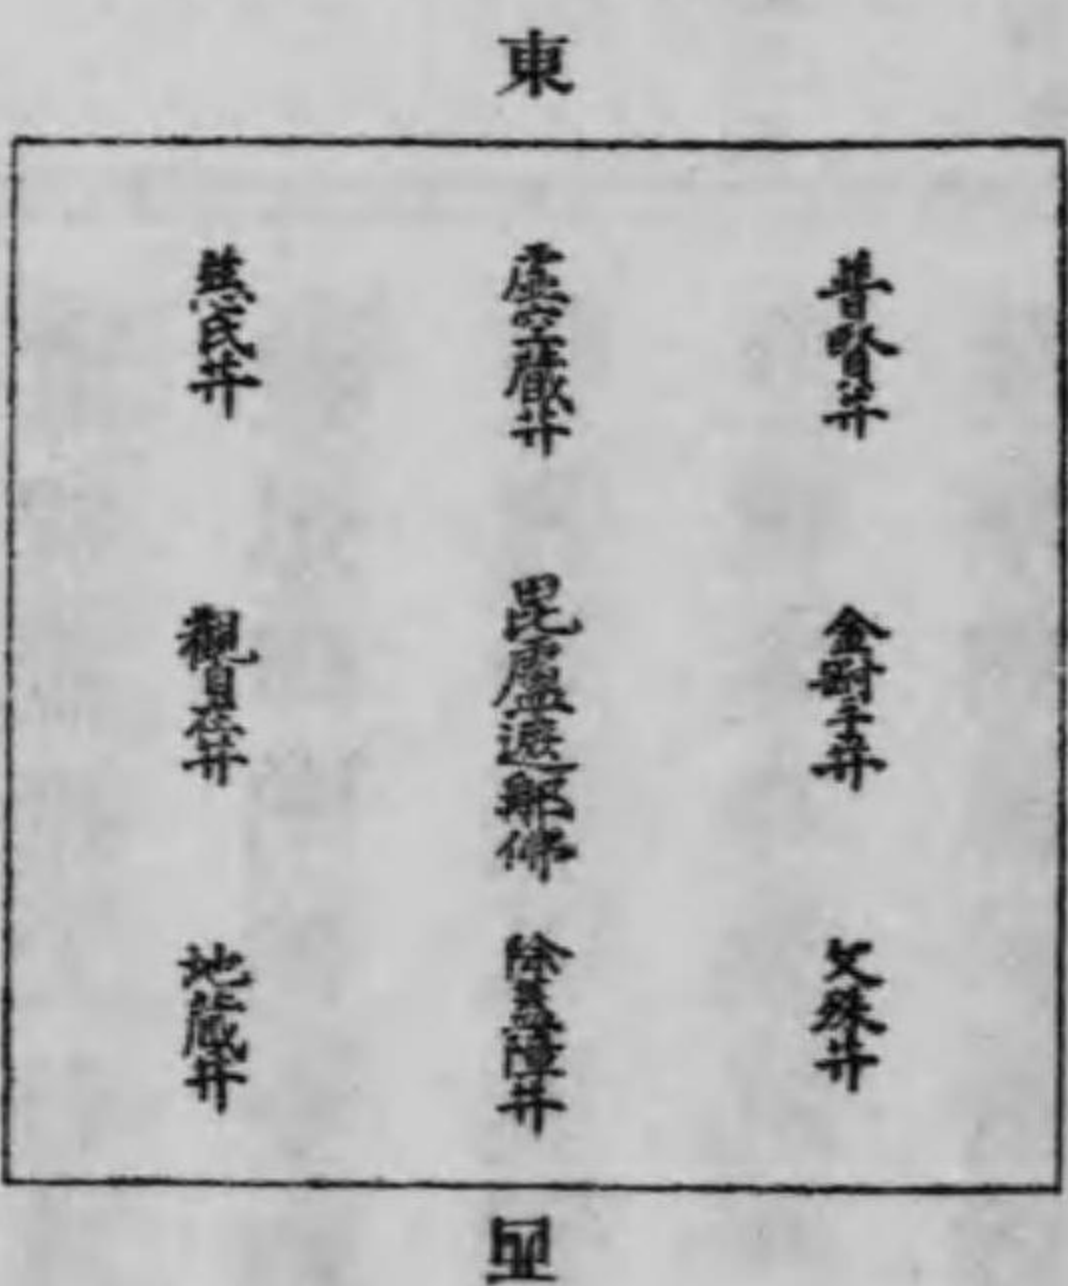 東
普賢𦬇
金剛手𦬇
文殊𦬇
虛空藏𦬇
毘盧遮那佛
除蓋障𦬇
慈氏𦬇
觀自在𦬇
地藏𦬇
西